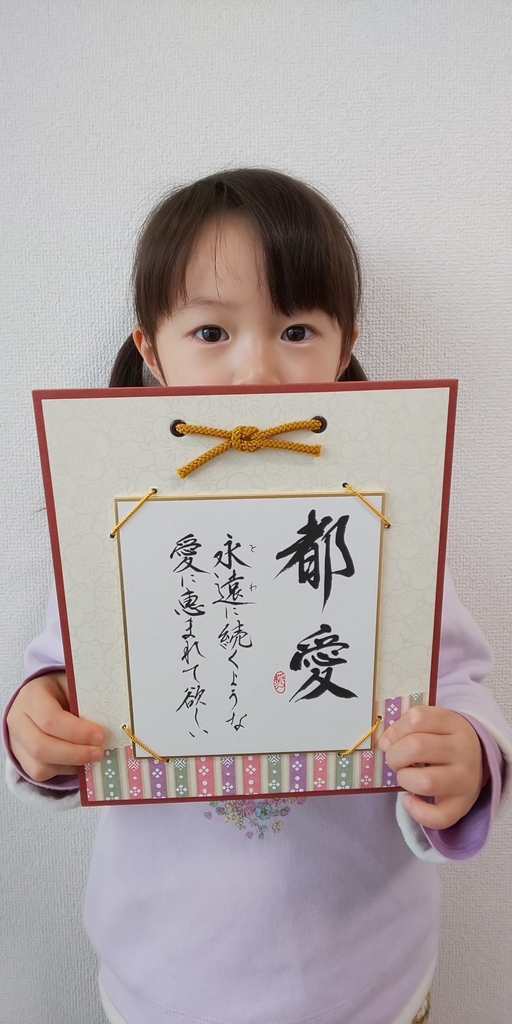 都愛
永遠に続くような
とわ
愛に恵まれて欲しい